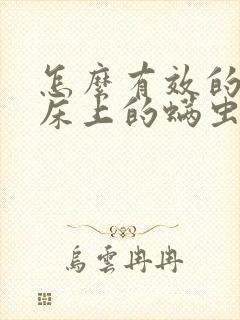 怎麼有效的
床上的螨虫
烏雲冉冉